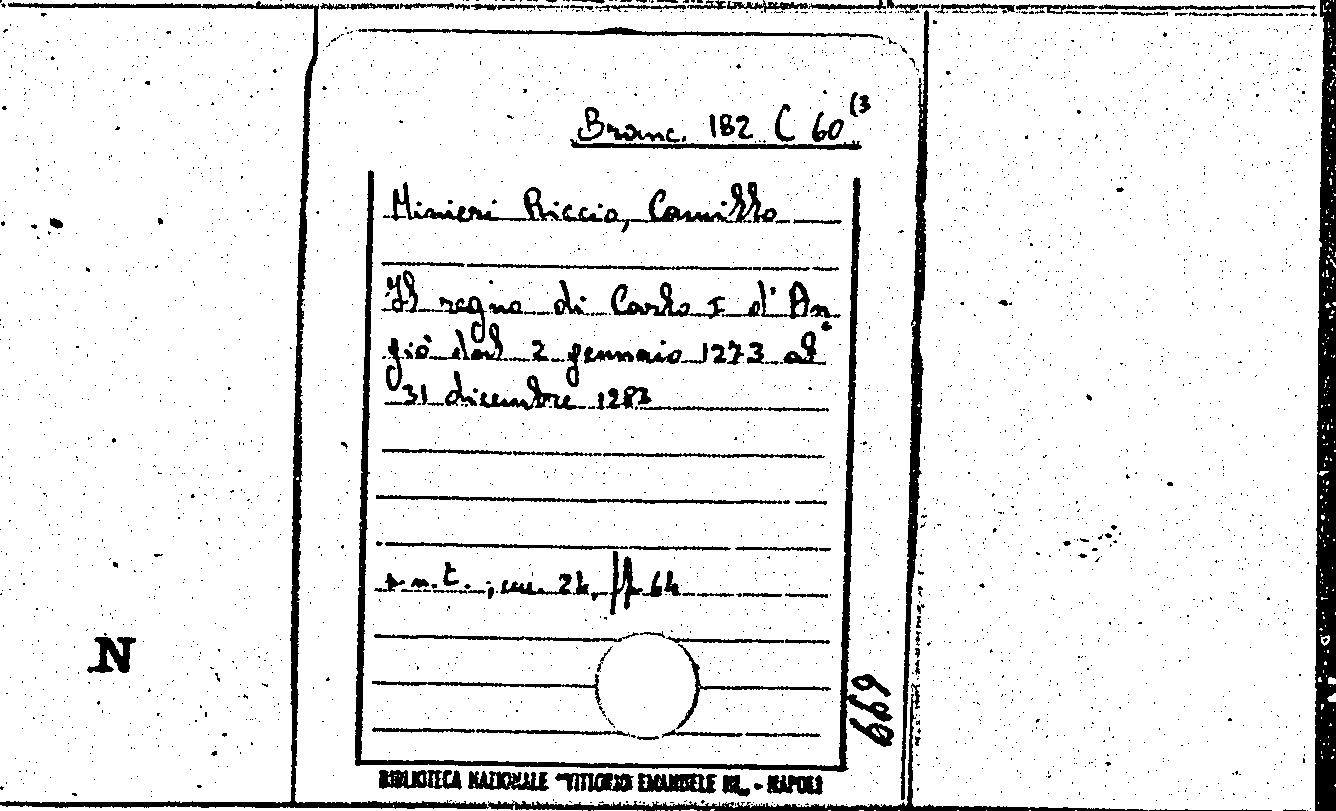 Branc. 182 C 60(3
Minieri Riccio, Camillo
Il regno di Carlo I d'An
giò dal 2 gennaio 1273 al
31 dicembre 1283
s.n.t.; cm. 24, pp. 64
N
699
BIBLIOTECA NAZIONALE "VITTORIO EMANUELE III„ - NAPOLI